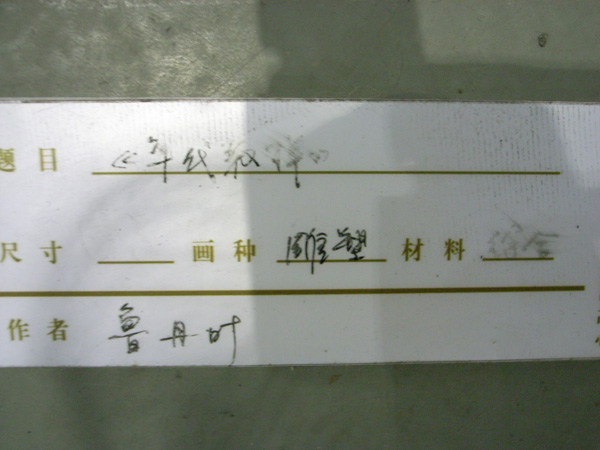 题目 《年代叙
尺寸 画种 雕塑 材料 综合
作者 鲁丹叶